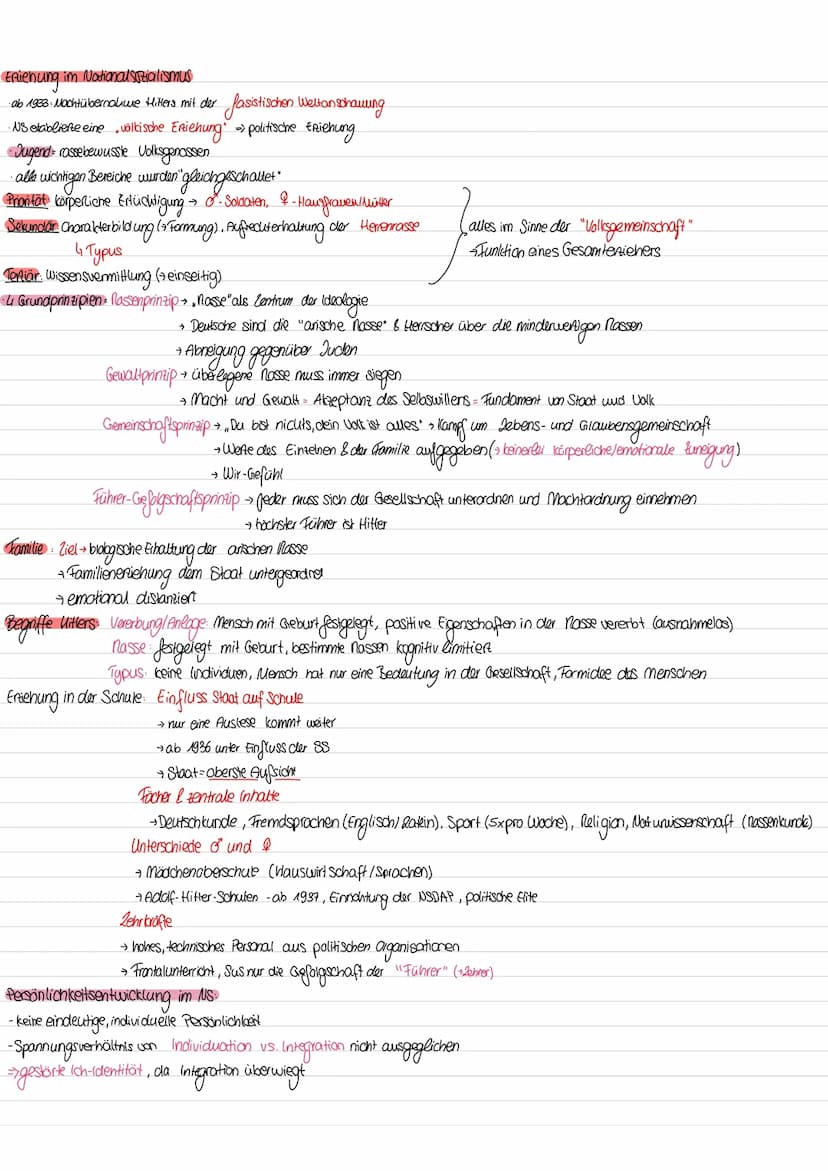 Erziehung im Nationalsozialismus
·ab 1933: Machtübernahme Hitlers mit der fasistischen Weltanschauung
·NS etablierte eine „völkische Erziehung" → politische Erziehung
·Jugend= rassebewusste Volksgenossen
·alle wichtigen Bereiche wurden "gleichgeschaltet"
Priorität: körperliche Ertüchtigung → ♂-Soldaten, ♀-Hausfrauen/Mütter
Sekundär: Charakterbildung (→Formung), Aufrechterhaltung der Herrenrasse
↳ Typus
Tertiär: Wissensvermittlung (→ einseitig)
alles im Sinne der "Volksgemeinschaft"
→Funktion eines Gesamterziehers
·4 Grundprinzipien: Rassenprinzip → „Rasse" als Zentrum der Ideologie
→ Deutsche sind die "arische Rasse" & Herrscher über die minderwertigen Rassen
→ Abneigung gegenüber Juden
Gewaltprinzip → überlegene Rasse muss immer siegen
→ Macht und Gewalt = Akzeptanz des Selbstwillers = Fundament von Staat und Volk
Gemeinschaftsprinzip → „Du bist nichts, dein Volk ist alles" → Kampf um Lebens- und Glaubensgemeinschaft
→ Werte des Einzelnen & der Familie aufgegeben (→ keinerlei körperliche/emotionale Zuneigung)
→ Wir-Gefühl
Führer-Gefolgschaftsprinzip → Jeder muss sich der Gesellschaft unterordnen und Machtordnung einnehmen
→ höchster Führer ist Hitler
Familie: Ziel → biologische Erhaltung der arischen Rasse
→ Familienerziehung dem Staat untergeordnet
→ emotional distanziert
Begriffe Hitlers: Vererbung/Anlage: Mensch mit Geburt festgelegt, positive Eigenschaften in der Rasse vererbt (ausnahmelos)
Rasse: festgelegt mit Geburt, bestimmte Rassen kognitiv limitiert
Typus: keine Individuen, Mensch hat nur eine Bedeutung in der Gesellschaft, Formidee des Menschen
Erziehung in der Schule: Einfluss Staat auf Schule
→ nur eine Auslese kommt weiter
→ ab 1936 unter Einfluss der SS
→ Staat = oberste Aufsicht
Fächer & zentrale Inhalte
→ Deutschkunde, Fremdsprachen (Englisch/Latein), Sport (5x pro Woche), Religion, Naturwissenschaft (Rassenkunde)
Unterschiede ♂ und ♀
→ Mädchenoberschule (Hauswirtschaft/Sprachen)
→ Adolf-Hitler-Schulen - ab 1937, Einrichtung der NSDAP, politische Elite
Lehrkräfte
→ hohes, technisches Personal aus politischen Organisationen
→ Frontalunterricht, SuS nur die Gefolgschaft der "Führer" (→Lehrer)
Persönlichkeitsentwicklung im NS:
- keine eindeutige, individuelle Persönlichkeit
- Spannungsverhältnis von Individuation vs. Integration nicht ausgeglichen
⇒ gestörte Ich-Identität, da Integration überwiegt